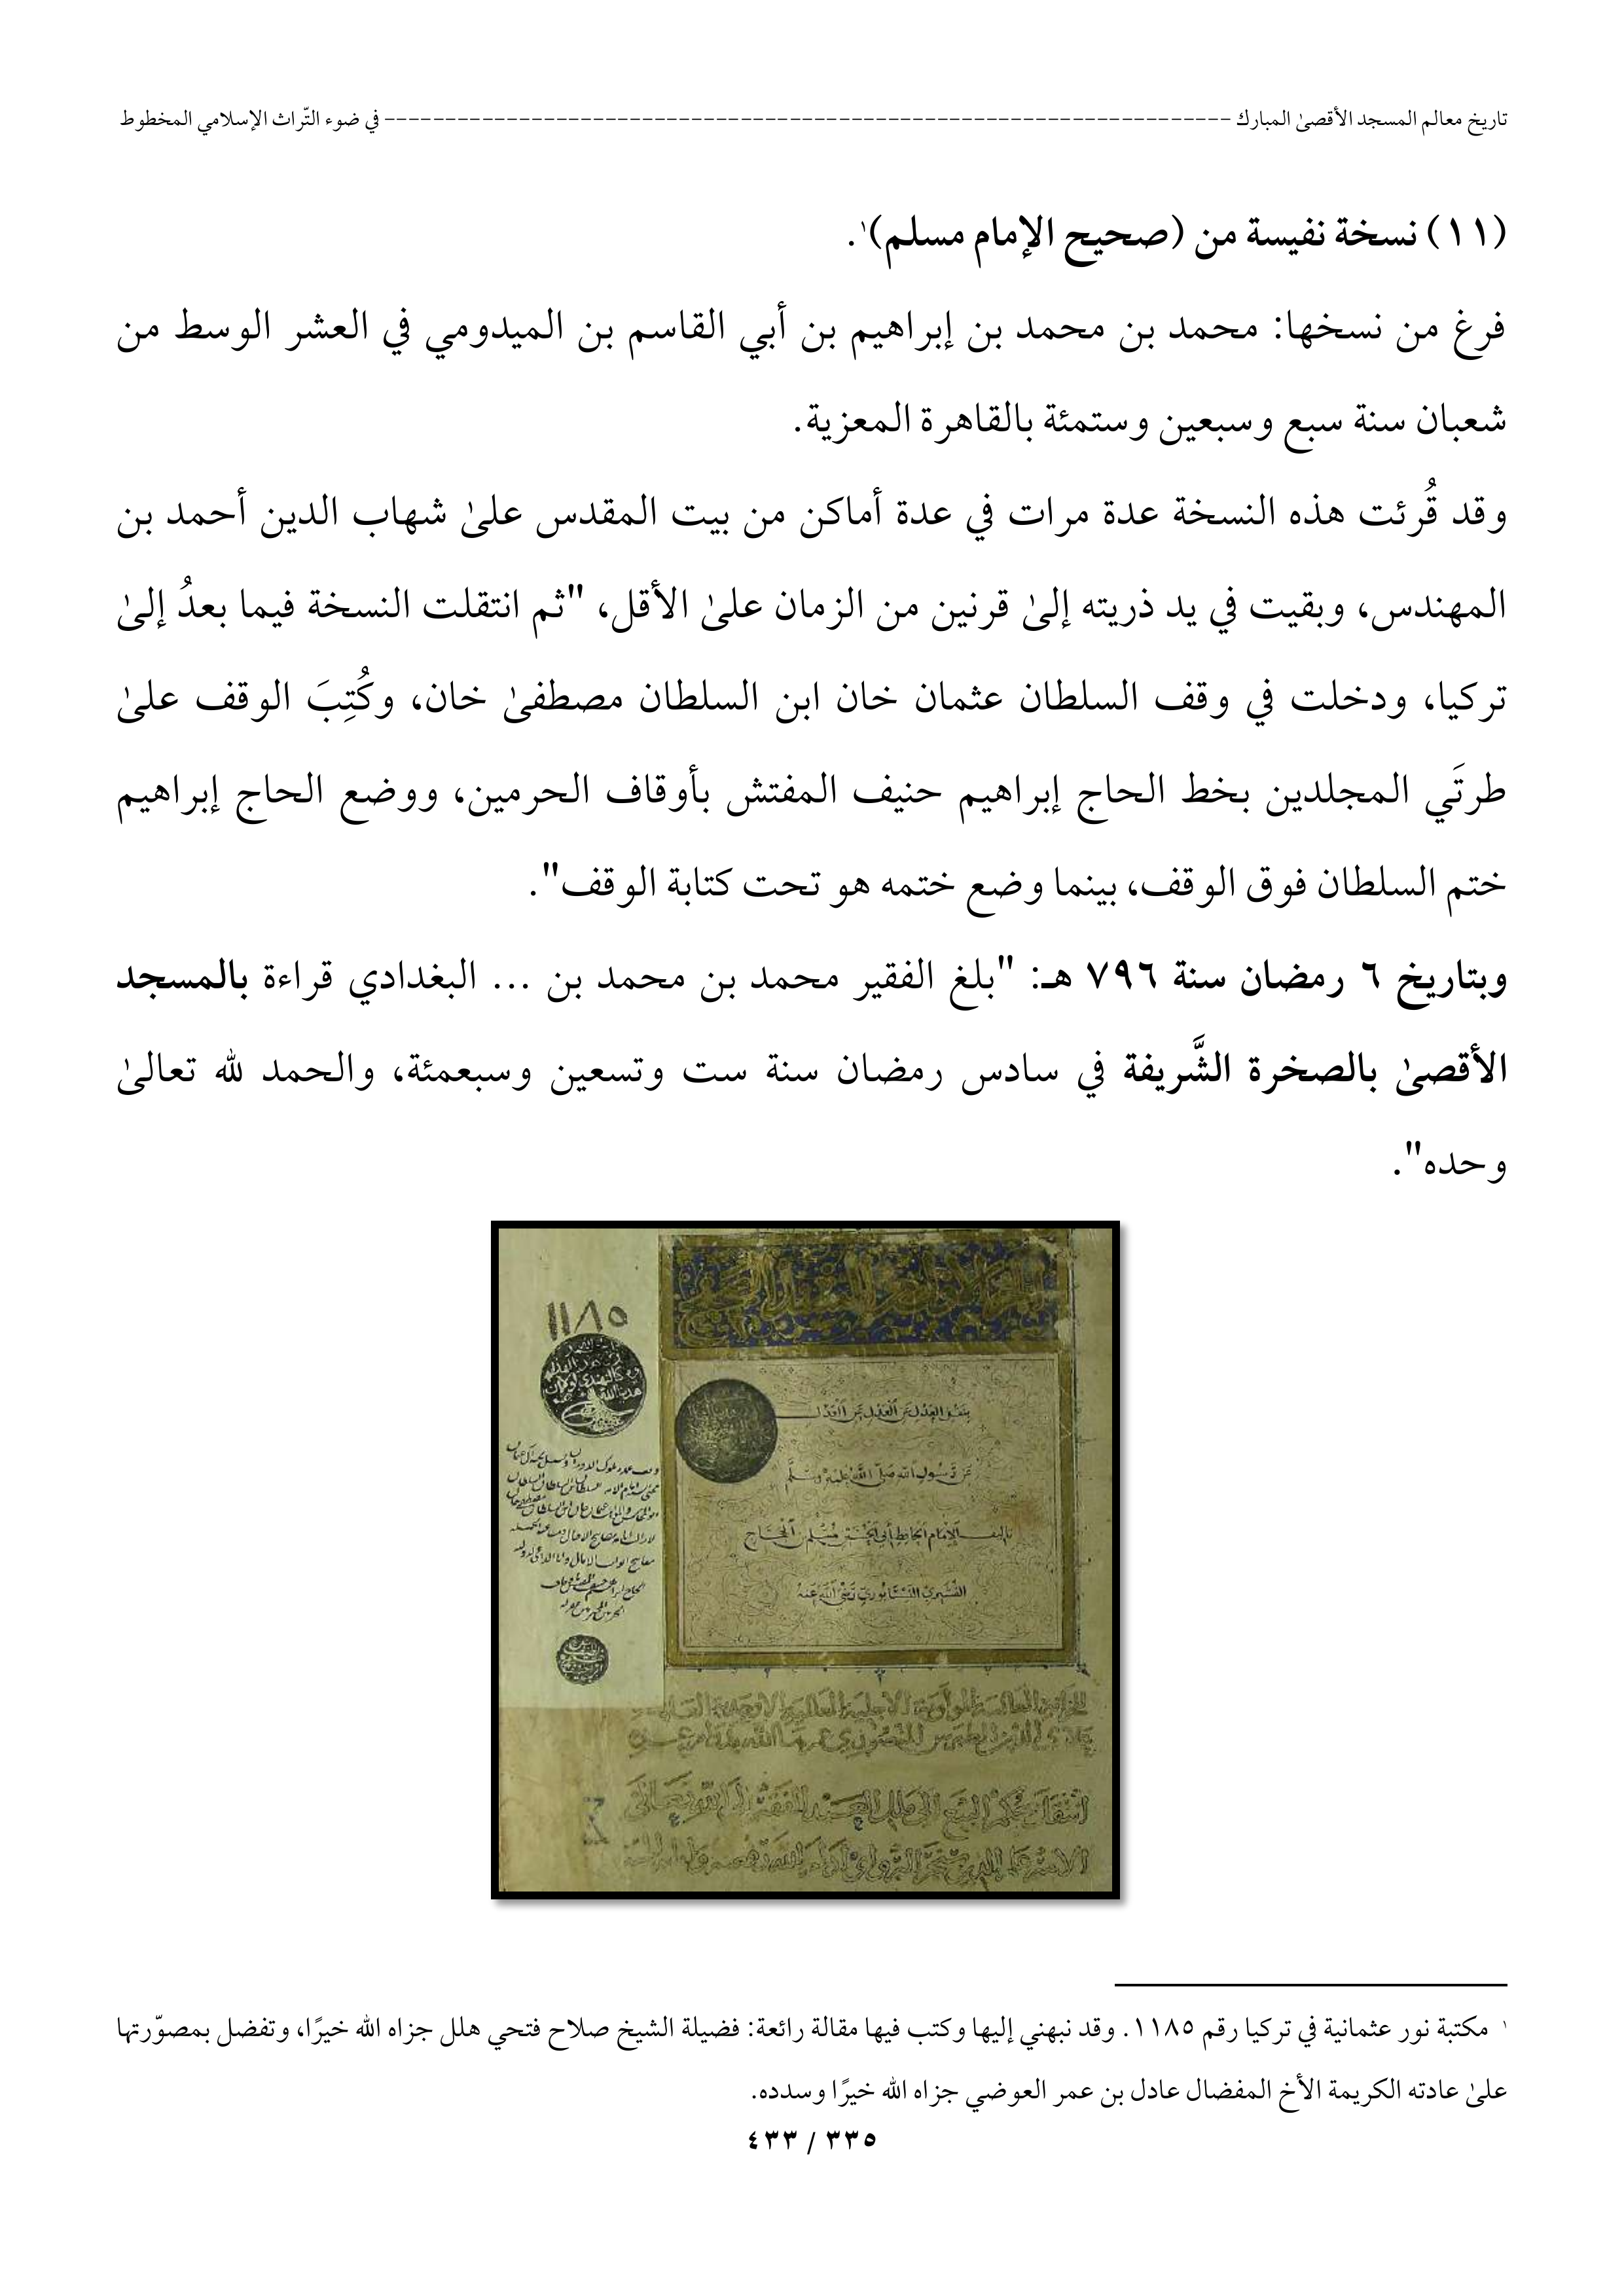 تاريخ معالم المسجد الأقصىٰ المبارك ---------------------------------------------------------------------- في ضوء التّراث الإسلامي المخطوط
(١١) نسخة نفيسة من (صحيح الإمام مسلم)١.
فرغ من نسخها: محمد بن محمد بن إبراهيم بن أبي القاسم بن الميدومي في العشر الوسط من
شعبان سنة سبع وسبعين وستمئة بالقاهرة المعزية.
وقد قُرئت هذه النسخة عدة مرات في عدة أماكن من بيت المقدس علىٰ شهاب الدين أحمد بن
المهندس، وبقيت في يد ذريته إلىٰ قرنين من الزمان علىٰ الأقل، "ثم انتقلت النسخة فيما بعدُ إلىٰ
تركيا، ودخلت في وقف السلطان عثمان خان ابن السلطان مصطفىٰ خان، وكُتِبَ الوقف علىٰ
طرتَي المجلدين بخط الحاج إبراهيم حنيف المفتش بأوقاف الحرمين، ووضع الحاج إبراهيم
ختم السلطان فوق الوقف، بينما وضع ختمه هو تحت كتابة الوقف".
وبتاريخ ٦ رمضان سنة ٧٩٦ هـ: "بلغ الفقير محمد بن محمد بن ... البغدادي قراءة بالمسجد
الأقصىٰ بالصخرة الشَّريفة في سادس رمضان سنة ست وتسعين وسبعمئة، والحمد لله تعالىٰ
وحده".
١١٨٥
بنقل العدل عن العدل عن العدل
عن رسول الله صلى الله عليه وسلم
تأليف الإمام الحافظ أبي الحسين مسلم بن الحجاج
القشيري النيسابوري رضي الله عنه
١ مكتبة نور عثمانية في تركيا رقم ١١٨٥. وقد نبهني إليها وكتب فيها مقالة رائعة: فضيلة الشيخ صلاح فتحي هلل جزاه الله خيرًا، وتفضل بمصوّرتها
علىٰ عادته الكريمة الأخ المفضال عادل بن عمر العوضي جزاه الله خيرًا وسدده.
٣٣٥ / ٤٣٣